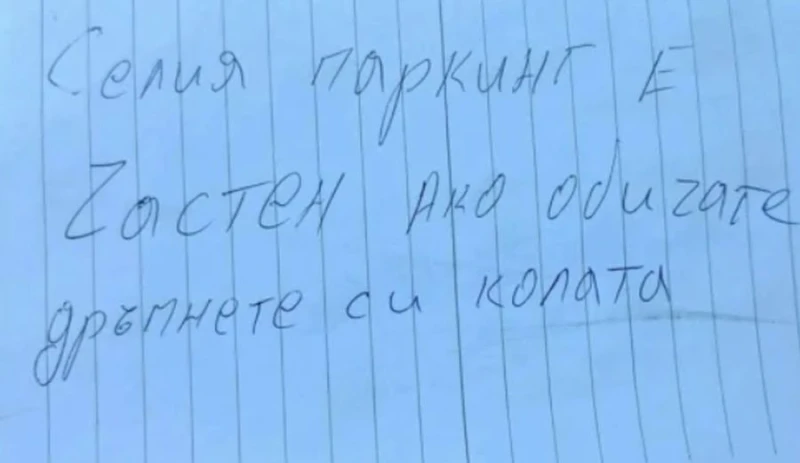 Селия паркинг Е
Частен Ако обичате
дръпнете си колата